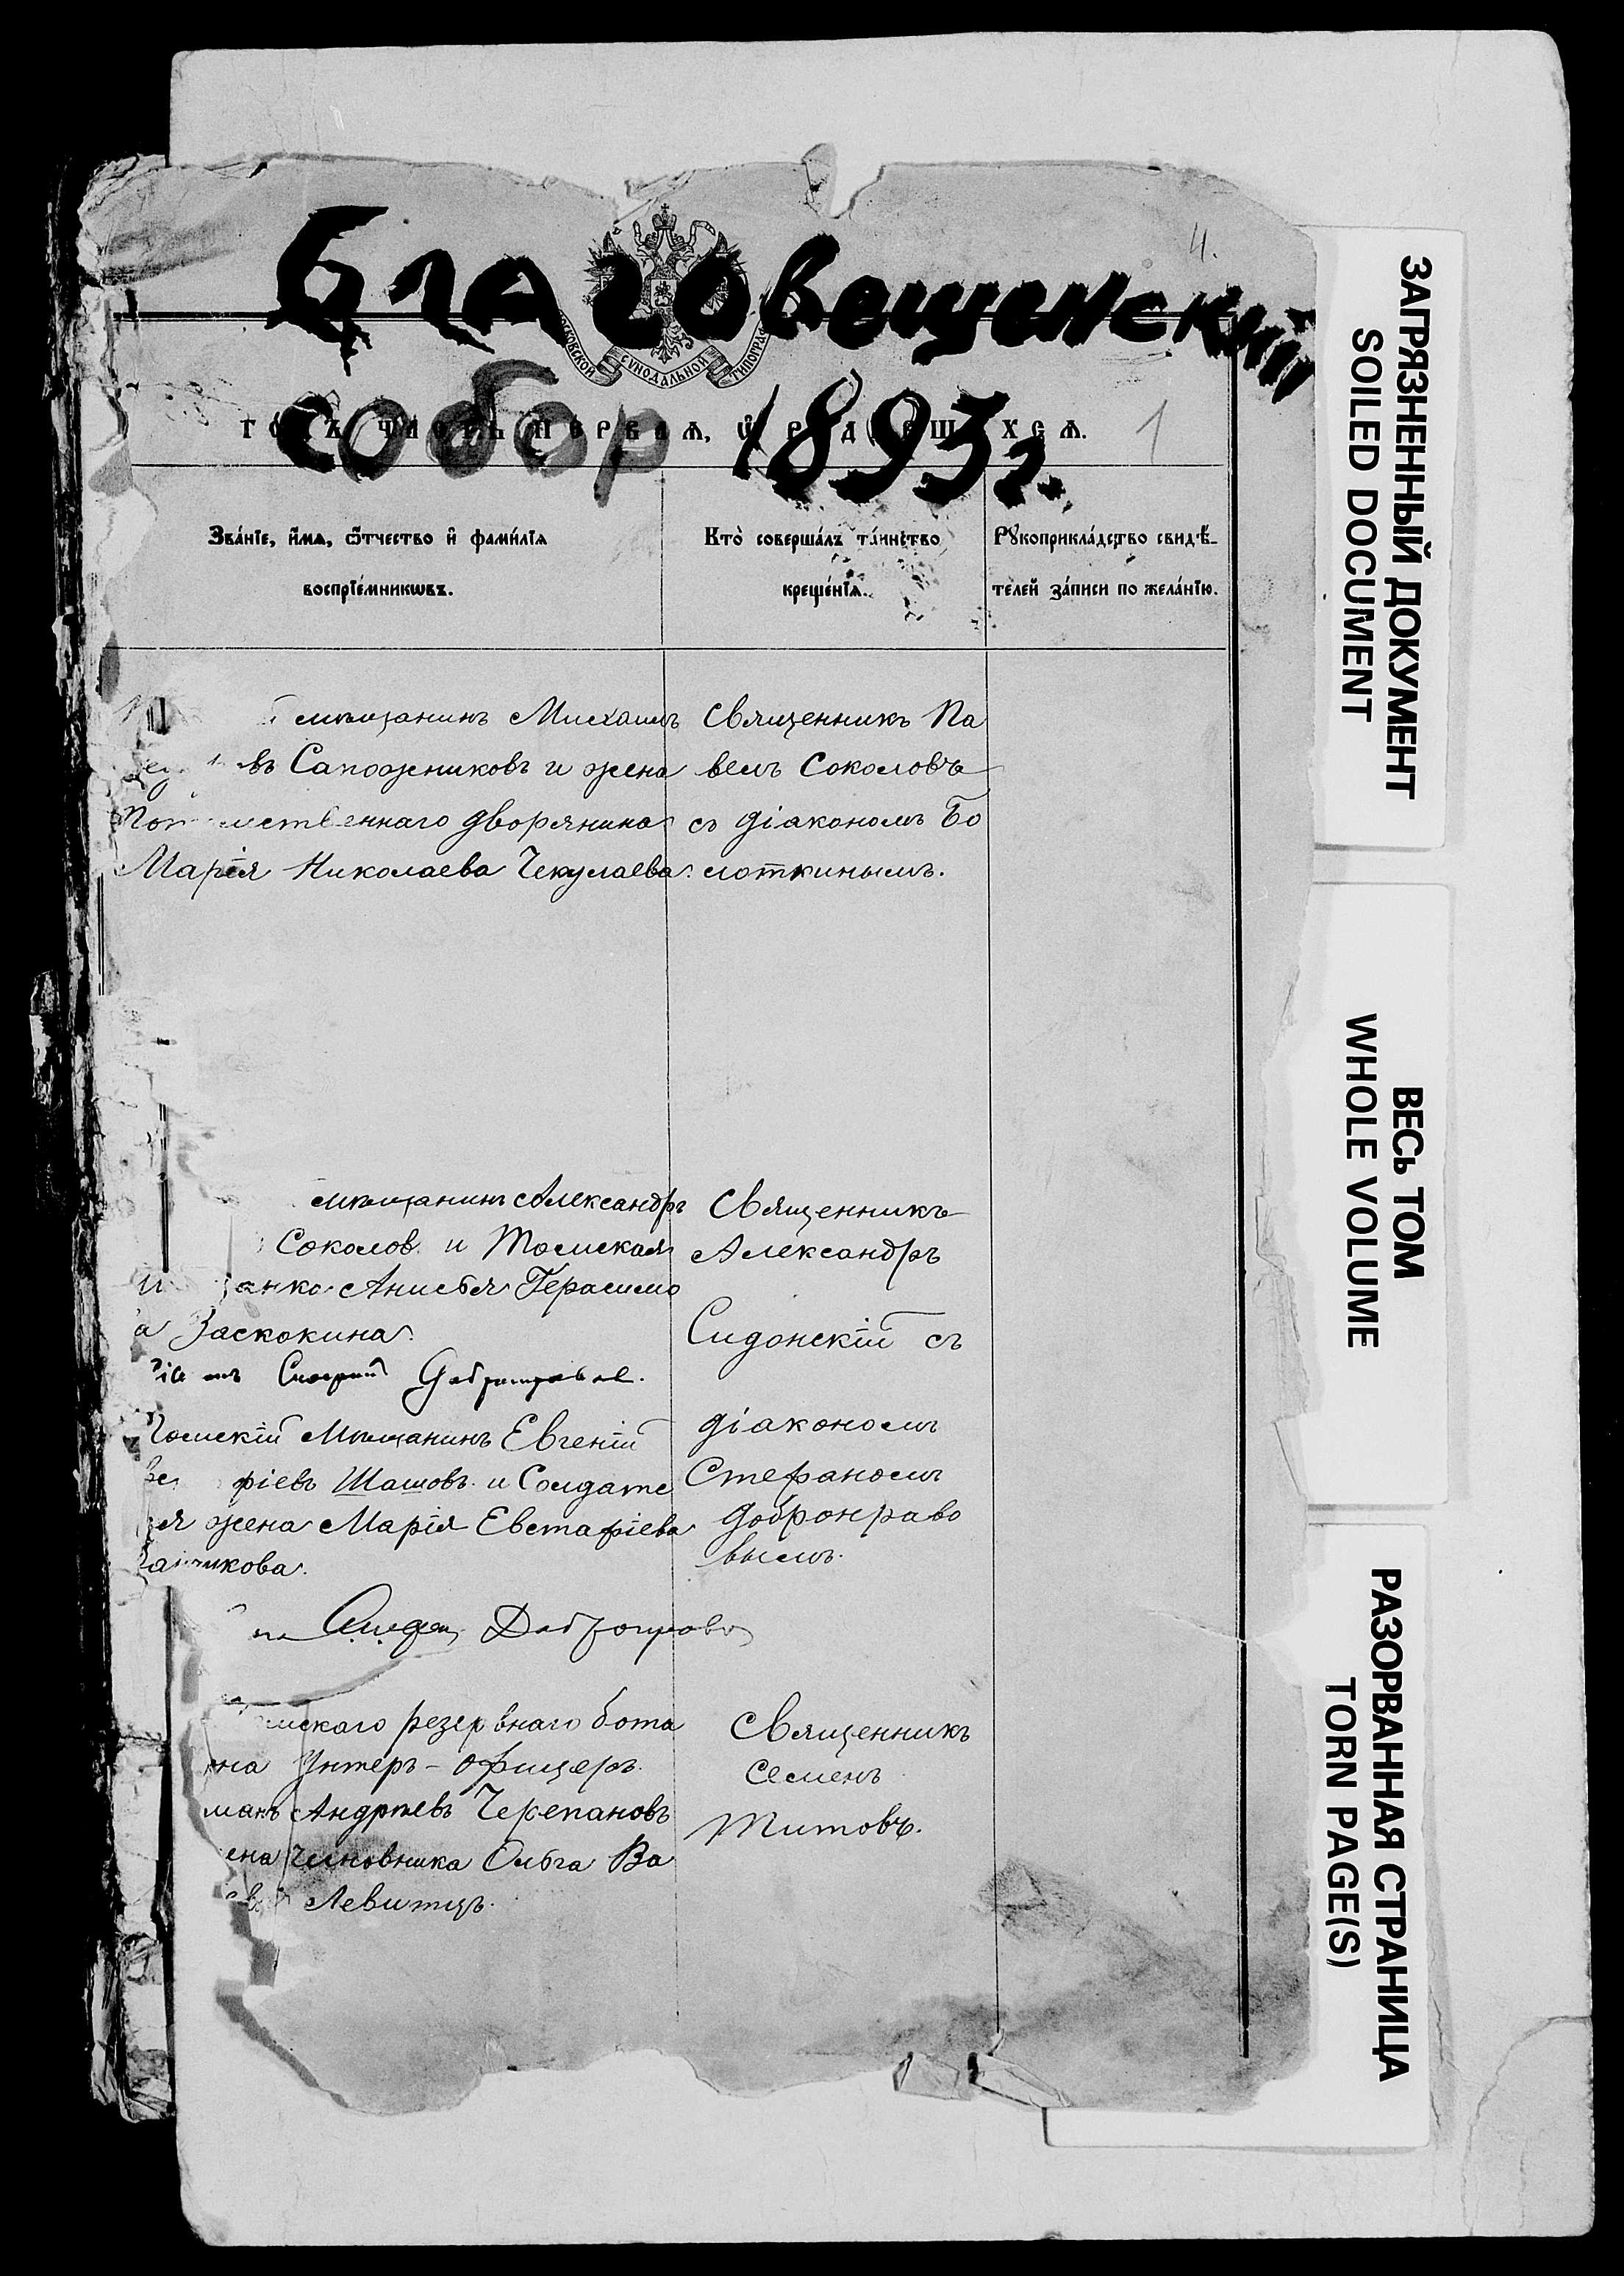 4.
Благовещенский
МОСКОВСКОЙ СѴНОДАЛЬНОЙ ТИПОГРАФ
собор 1893 г.
ГОДЪ, ЧАСТЬ ПЕРВАЯ, Ѡ РОДИВШИХСЯ. 1
Зва́нїе, и҆́мѧ, ѻ҆́тчество и҆ фами́лїѧ
воспрїе́мникѡвъ.
Кто̀ соверша́лъ та́инство
креще́нїѧ.
Рꙋкоприкла́дство свидѣ́-
телей за́писи по жела́нїю.
мѣщанинъ Михаилъ
въ Сапожниковъ и жена
Пот мственнаго дворянина
Марія Николаева Чекулаева.
Священникъ Па
велъ Соколовъ
съ діакономъ Бо
лоткинымъ.
мѣщанинъ Александръ
Соколов и Томская
анка Анисья Герасимо
а Заскокина.
Томскій Мѣщанинъ Евгеній
ріевъ Шашовъ и Солдатс
ая жена Марія Евстафіева
чикова.
Священникъ
Александръ
Сидонскій съ
діакономъ
Стефаномъ
Добронраво
вымъ.
мскаго резервнаго бата
на Унтеръ-офицеръ
манъ Андреевъ Черепановъ
ена Чиновника Ольга Ва
Левитцъ.
Священникъ
Семенъ
Титовъ.
ЗАГРЯЗНЕННЫЙ ДОКУМЕНТ
SOILED DOCUMENT
ВЕСЬ ТОМ
WHOLE VOLUME
РАЗОРВАННАЯ СТРАНИЦА
TORN PAGE(S)